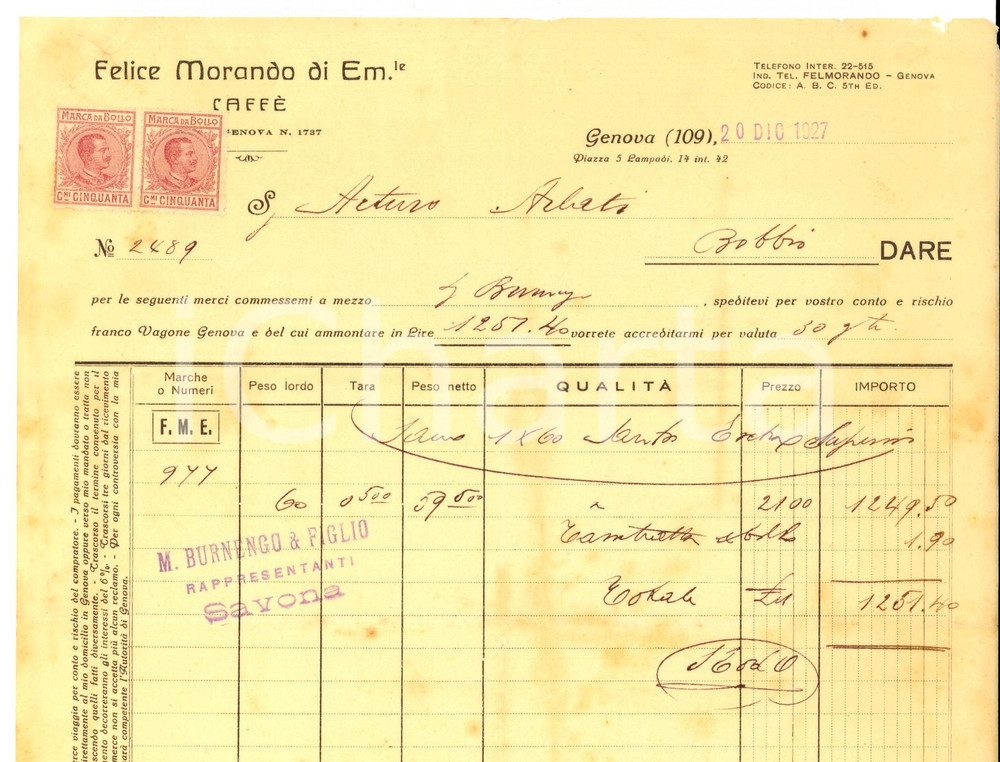 Felice Morando di Em.le
CAFFÈ
GENOVA N. 1737
TELEFONO INTER. 22-515
IND. TEL. FELMORANDO - GENOVA
CODICE: A. B. C. 5TH ED.
MARCA DA BOLLO
MARCA DA BOLLO
CMI CINQUANTA
CMI CINQUANTA
Genova (109), 20 DIC 1927
Piazza 5 Lampadi, 14 int. 42
Sg Arturo Arbati
Nº 2489
Bobbio DARE
per le seguenti merci commessemi a mezzo , speditevi per vostro conto e rischio
franco Vagone Genova e del cui ammontare in Lire 1251.40 vorrete accreditarmi per valuta 30
Marche o Numeri Peso lordo Tara Peso netto QUALITÀ Prezzo IMPORTO
F. M. E.
1 x 60 Santos Extra Superior
977
60 0500 59500 2100 1249.50
1.90
M. BURNENGO & FIGLIO
RAPPRESENTANTI
Savona
Totale 1251.40
iCharta
merce viaggia per conto e rischio del compratore. - I pagamenti dovranno essere
direttamente al mio domicilio in Genova oppure verso mio mandato o tratta non
scendo quelli fatti diversamente. - Trascorso il termine convenuto per il
mento decorreranno gli interessi del 6%. - Trascorsi tre giorni dal ricevimento
merce non si accetta più alcun reclamo. - Per ogni controversia con la mia
sarà competente l'Autorità di Genova.